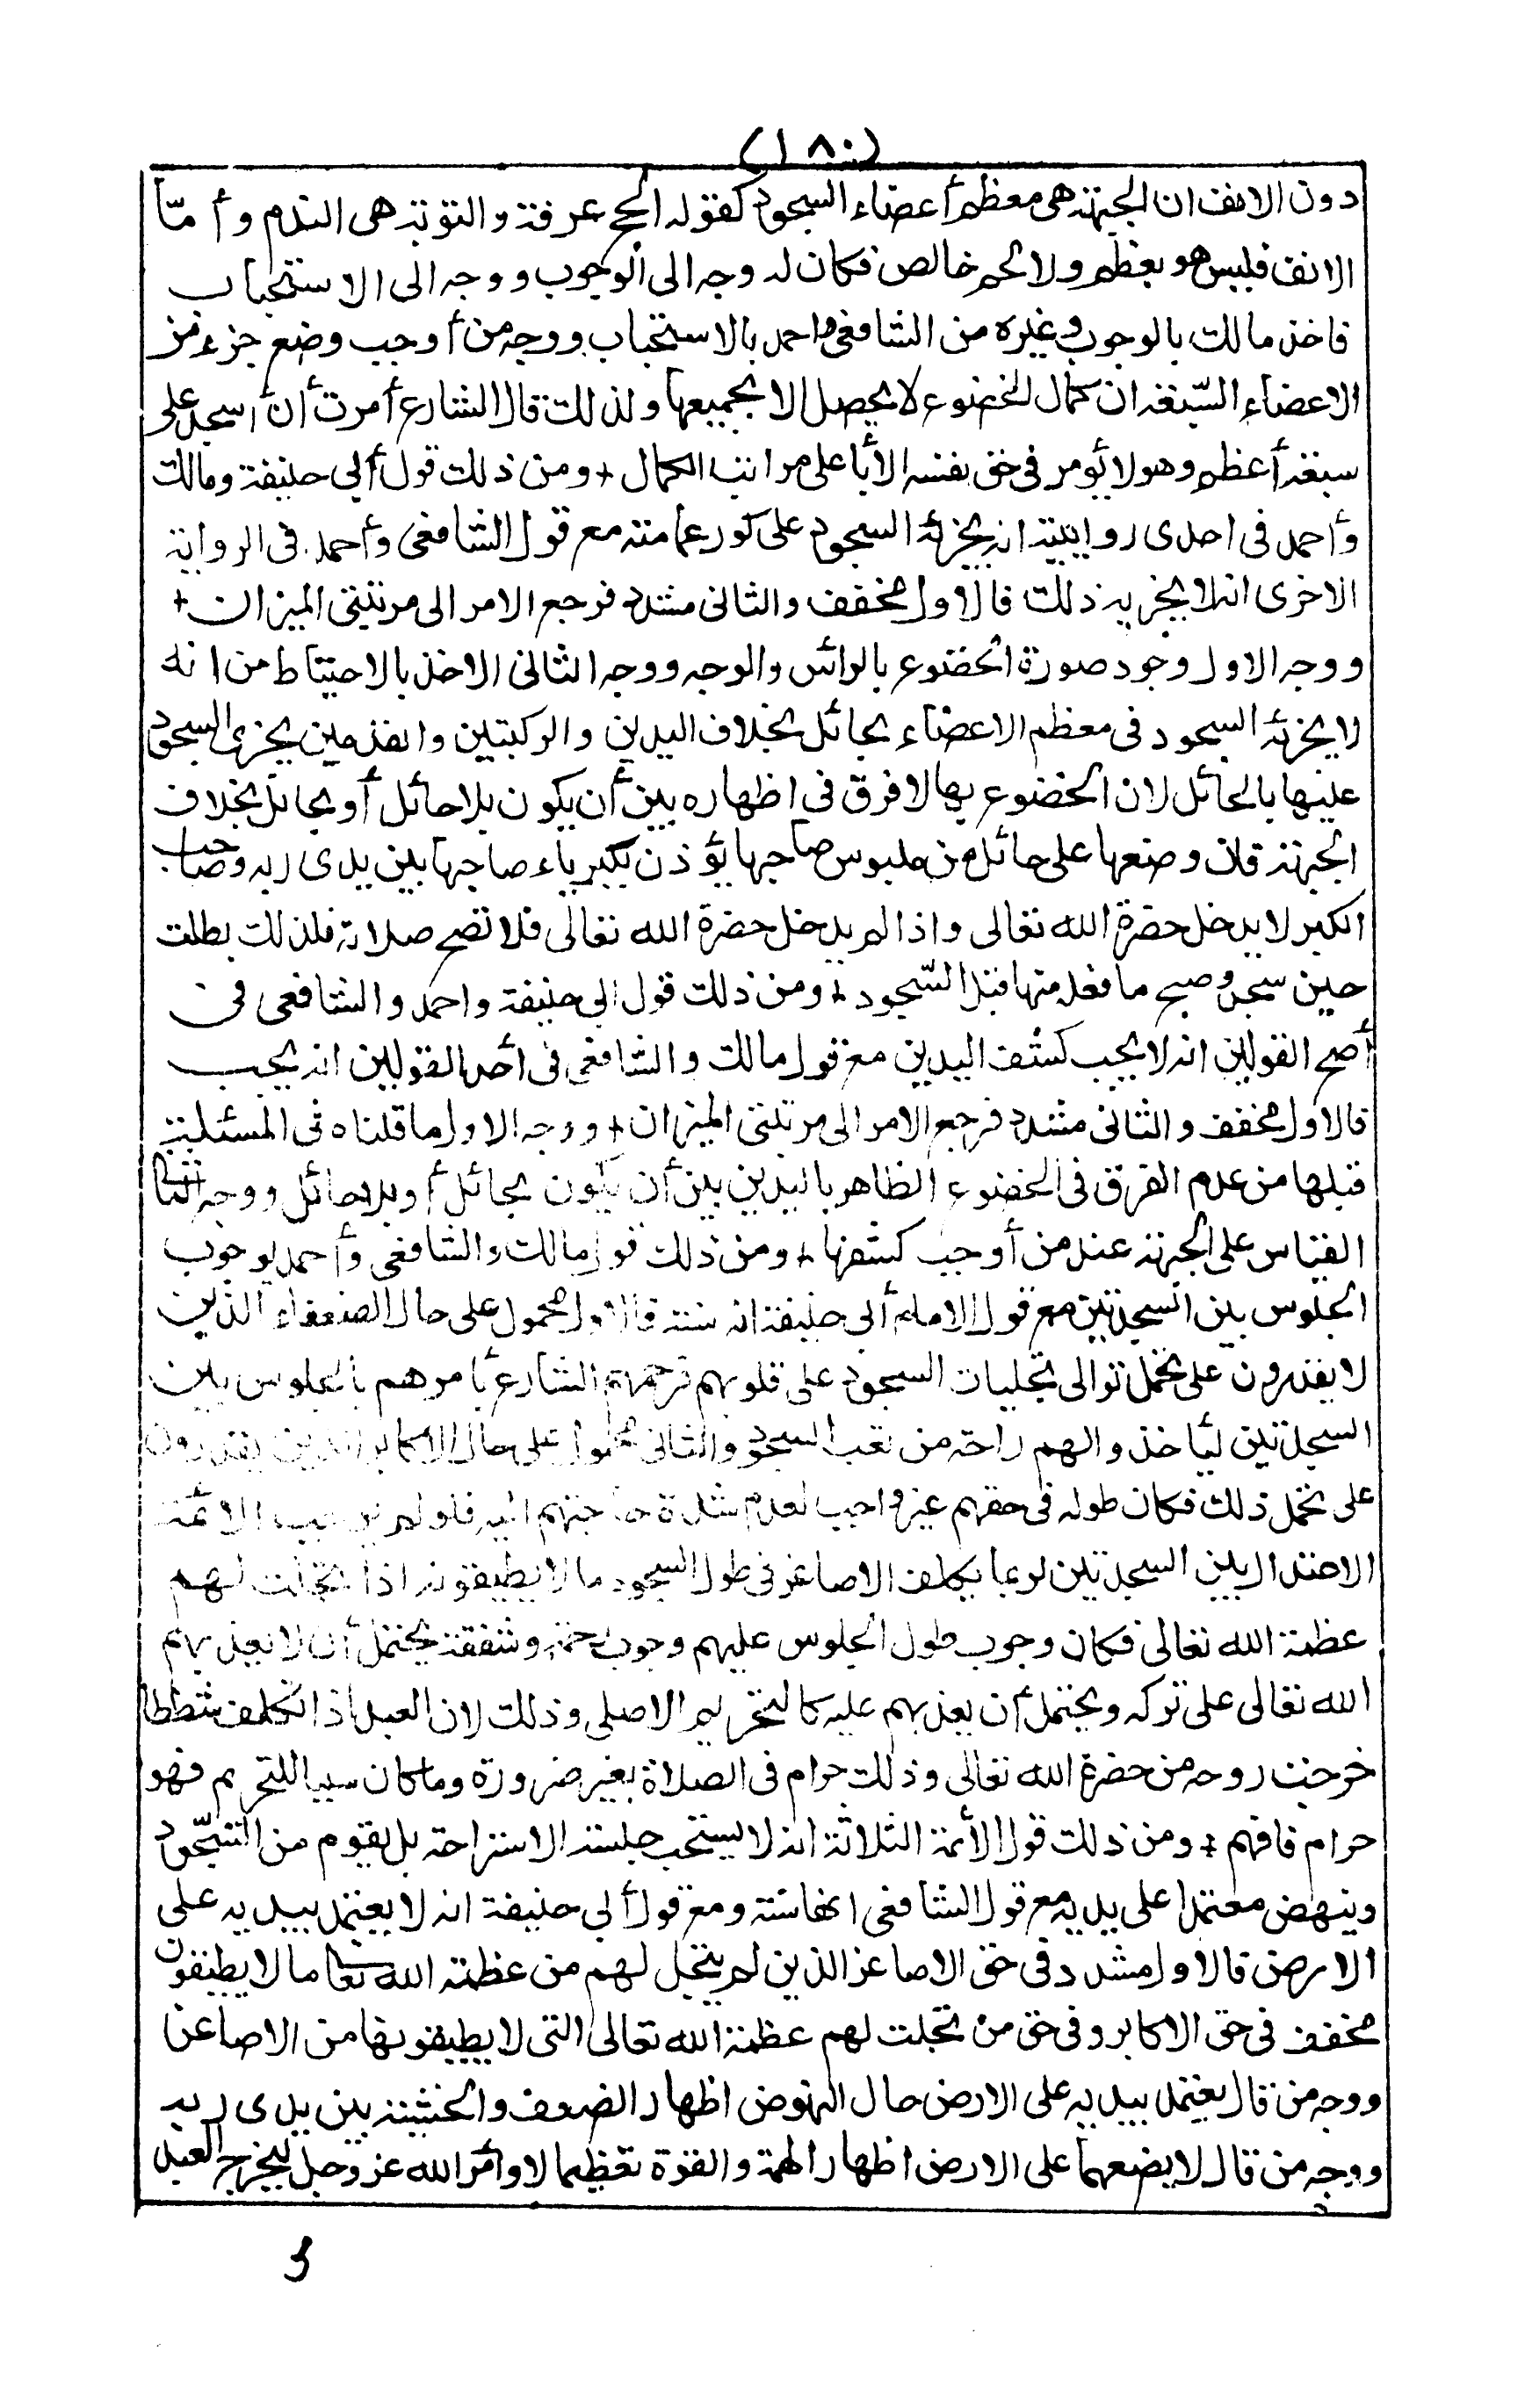 (١٨٠)
دون الانف ان الجبهة هى معظم أعضاء السجود كقوله الحج عرفة والتوبة هى الندم وأمّا
الانف فليس هو بعظم ولا لحم خالص فكان له وجه الى الوجوب ووجه الى الاستحباب
فاخذ مالك بالوجوب وغيره من الشافعى واحمد بالاستحباب ووجه من أوجب وضع جزء من
الاعضاء السّبعة ان كمال الخضوع لا يحصل الا بجميعها ولذلك قال الشارع أمرت أن أسجد على
سبعة أعظم وهو لا يؤمر فى حق نفسه الا بأعلى مراتب الكمال + ومن ذلك قول أبي حنيفة ومالك
وأحمد فى احدى روايتيه انه يجزئه السجود على كور عمامته مع قول الشافعى وأحمد فى الرواية
الاخرى انه لا يجزيه ذلك فالاول مخفف والثانى مشدد فرجع الامر الى مرتبتى الميزان +
ووجه الاول وجود صورة الخضوع بالرأس والوجه ووجه الثانى الاخذ بالاحتياط من انه
لا يجزئه السجود فى معظم الاعضاء بحائل بخلاف اليدين والركبتين والقدمين يجزى السجود
عليها بالحائل لان الخضوع بها لا فرق فى اظهاره بين أن يكون بلا حائل أو بحائل بخلاف
الجبهة فان وضعها على حائل من ملبوس صاحبها يؤذن بكبرياء صاحبها بين يدى ربه وصاحب
الكبر لا يدخل حضرة الله تعالى واذا لم يدخل حضرة الله تعالى فلا تصح صلاته فلذلك بطلت
حين سجد وصح ما فعله منها قبل السّجود + ومن ذلك قول ابي حنيفة واحمد والشافعى فى
أصح القولين انه لا يجب كشف اليدين مع قول مالك والشافعى فى أحد القولين انه يجب
فالاول مخفف والثانى مشدد فرجع الامر الى مرتبتى الميزان + ووجه الاول ما قلناه فى المسئلة
قبلها من عدم الفرق فى الخضوع الظاهر باليدين بين أن يكون بحائل أو بلا حائل ووجه الثانى
القياس على الجبهة عند من أوجب كشفها + ومن ذلك قول مالك والشافعى وأحمد بوجوب
الجلوس بين السجدتين مع قول الامام أبى حنيفة انه سنة فالاول محمول على حال الضعفاء الذين
لا يقدرون على تحمل توالى تجليات السجود على قلوبهم فرحمهم الشارع بأمرهم بالجلوس بين
السجدتين ليأخذوا لهم راحة من تعب السجود والثانى محمول على حال الاكابر الذين يقدرون
على تحمل ذلك فكان طوله فى حقهم غير واجب لعدم شدة حاجتهم اليه فلو لم يوجب الائمة
الاعتدال بين السجدتين لربما يكلف الاصاغر فى طول السجود ما لا يطيقونه اذا تجلت لهم
عظمة الله تعالى فكان وجوب طول الجلوس عليهم وجوب رحمة وشفقة يحتمل أن لا يعذبهم
الله تعالى على تركه ويحتمل أن يعذبهم عليه كالتحريم الاصلى وذلك لان العبد اذا تكلف شططا
خرجت روحه من حضرة الله تعالى وذلك حرام فى الصلاة بغير ضرورة وما كان سببا للتحريم فهو
حرام فافهم + ومن ذلك قول الأئمة الثلاثة انه لا يستحب جلسة الاستراحة بل يقوم من السّجود
وينهض معتمدا على يديه مع قول الشافعى انها سنة ومع قول أبى حنيفة انه لا يعتمد بيديه على
الارض فالاول مشدد فى حق الاصاغر الذين لم يتجل لهم من عظمة الله تعا ما لا يطيقون
مخفف فى حق الاكابر وفى حق من تجلت لهم عظمة الله تعالى التى لا يطيقونها من الاصاغر
ووجه من قال يعتمد بيديه على الارض حال النهوض اظهار الضعف والخشية بين يدى ربه
ووجه من قال لا يضعهما على الارض اظهار الهمة والقوة تعظيما لاوامر الله عز وجل ليخرج العبد